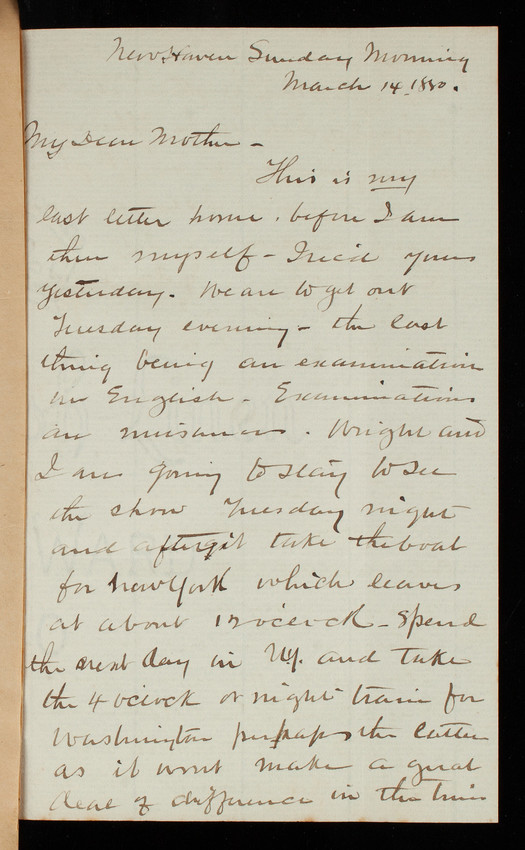 New Haven Sunday Morning
March 14, 1880.
My Dear Mother -
This is my
last letter home, before I am
there myself - I rec'd yours
yesterday. We are to get out
Tuesday evening - the last
thing being an examination
in English - Examinations
are nuisances. Wright and
I are going to stay to see
the show Tuesday night
and after it take the boat
for New York which leaves
at about 12 o'clock - Spend
the next day in N.Y. and take
the 4 o'clock or night train for
Washington perhaps the latter
as it wont make a great
deal of difference in the time